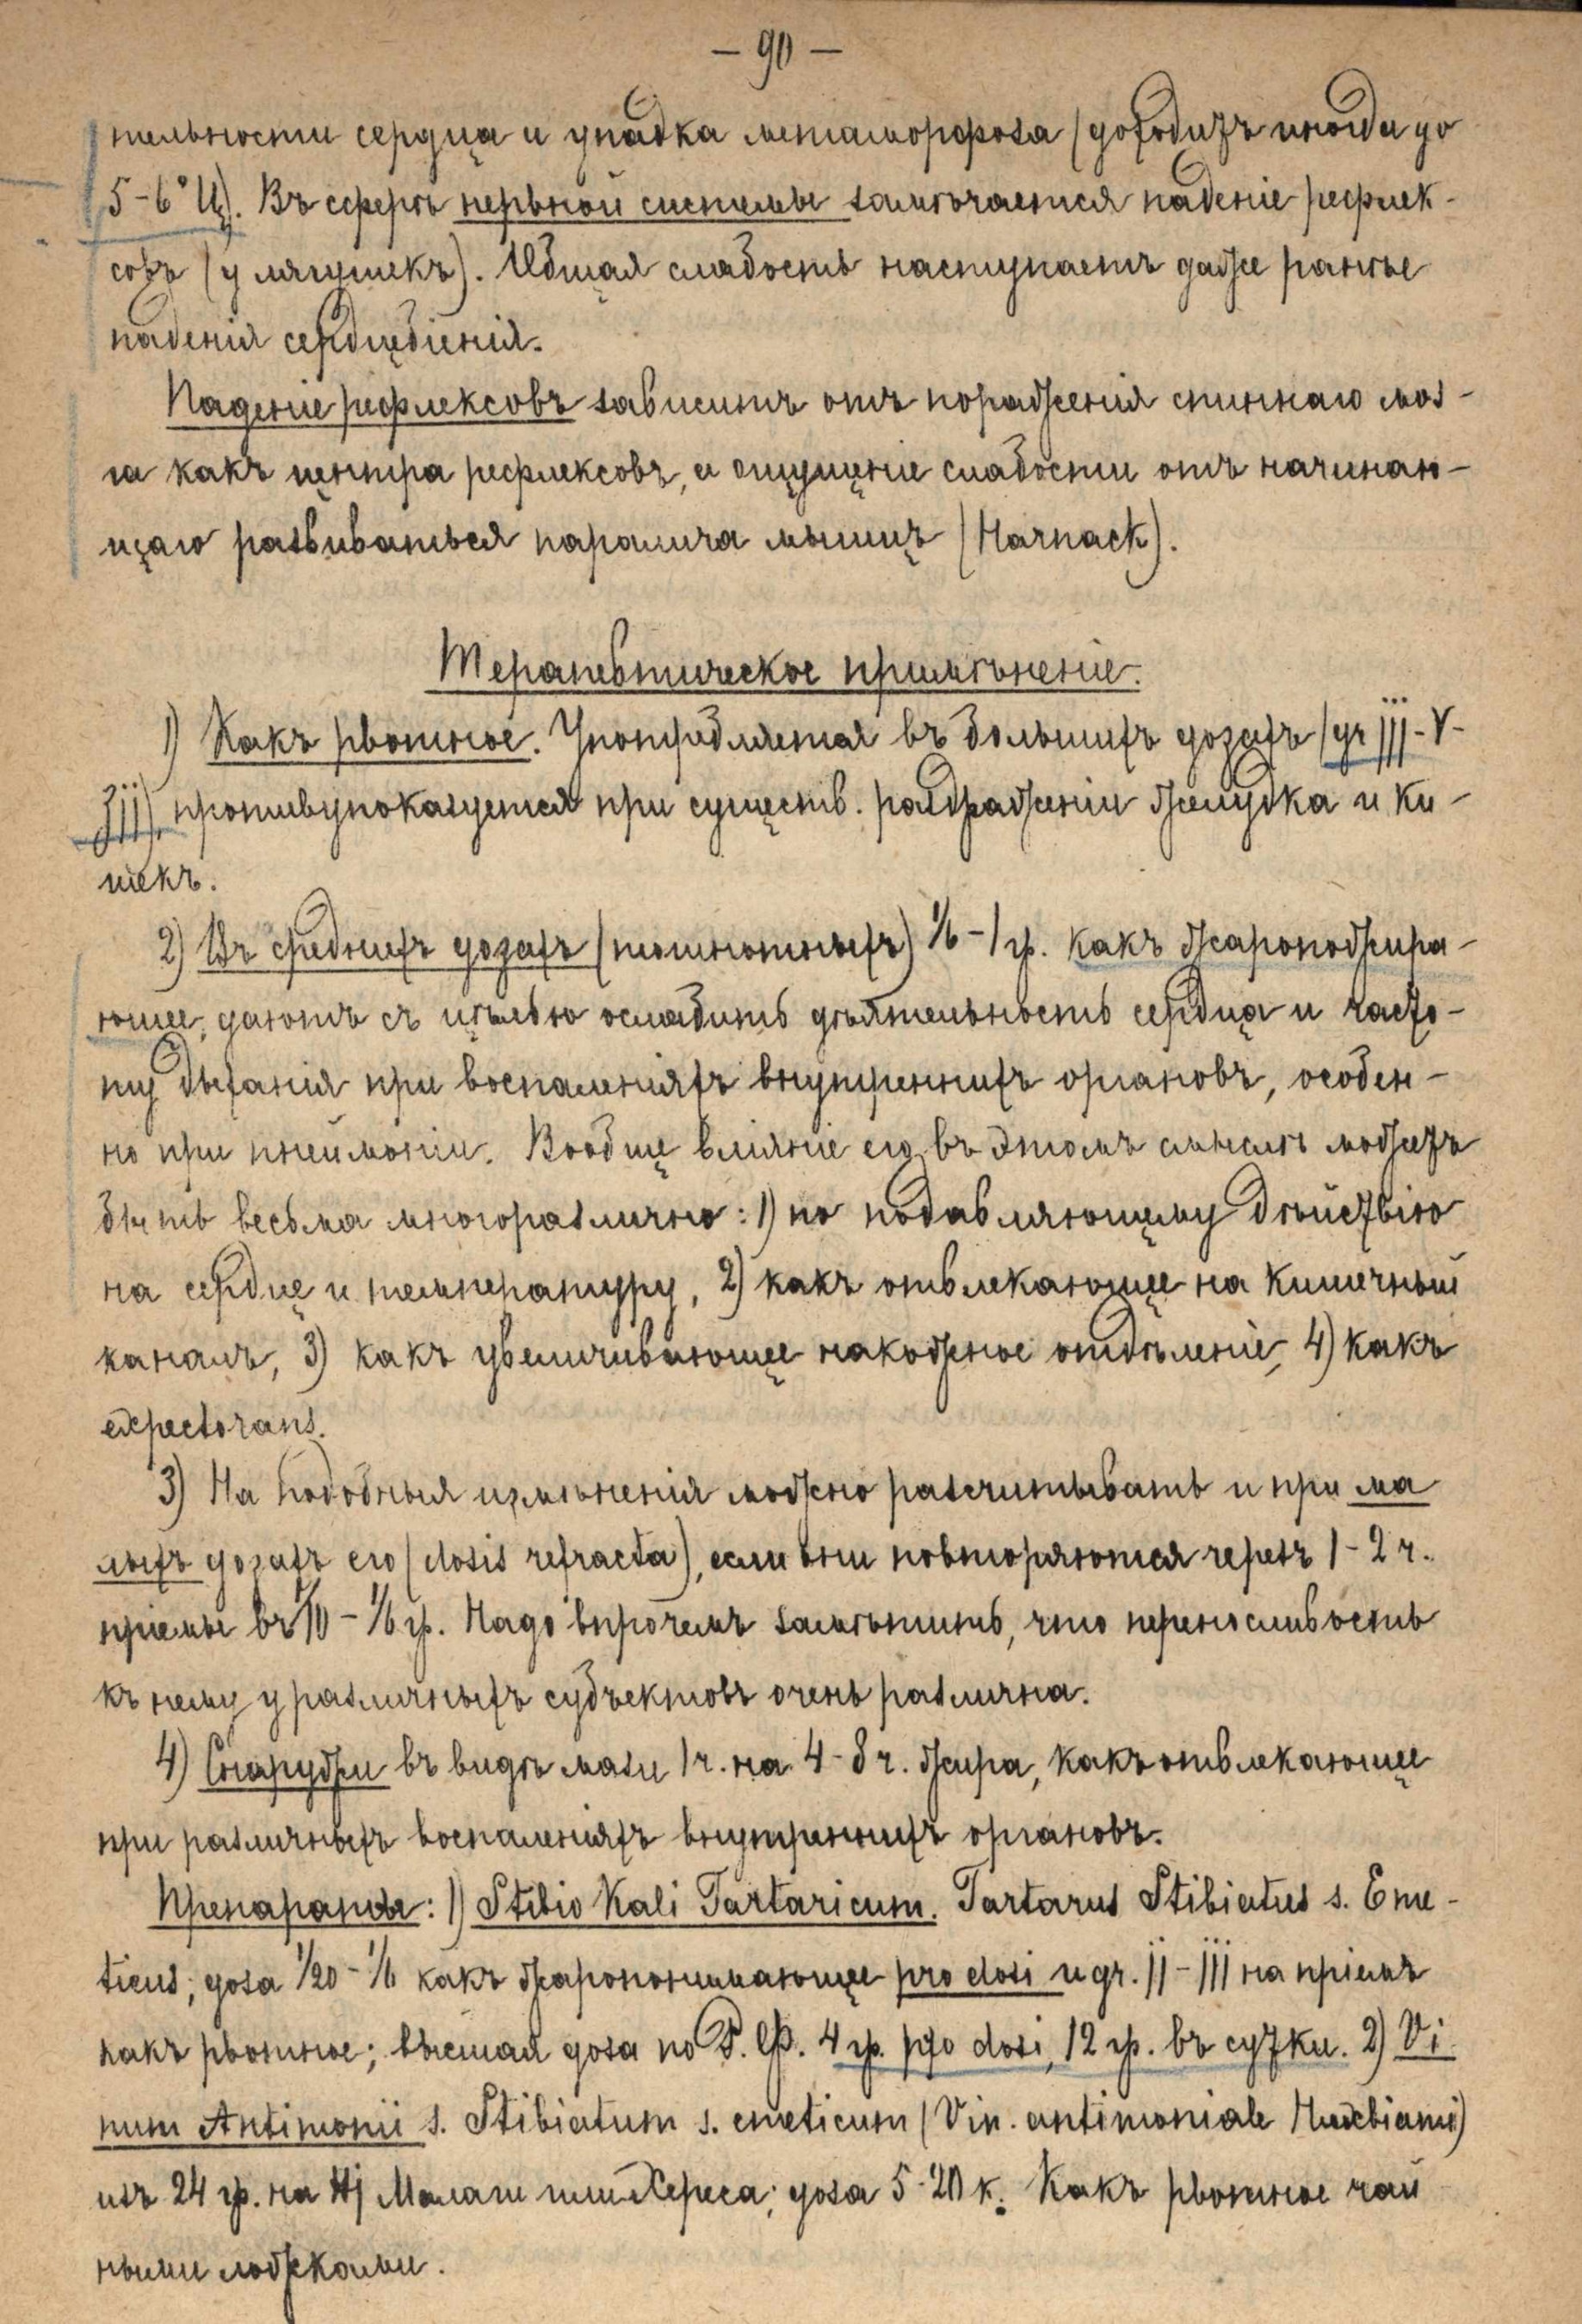 — 90 —
тельности сердца и упадка метаморфоза (доходитъ иногда до
5–6° Ц). Въ сферѣ нервной системы замѣчается паденіе рефлек-
совъ (у лягушекъ). Общая слабость наступаетъ даже ранѣе
паденія сердцебіенія.
Паденіе рефлексовъ зависитъ отъ пораженія спиннаго моз-
га какъ центра рефлексовъ, и ощущеніе слабости отъ начинаю-
щаго развиваться паралича мышцъ (Harnack).
Терапевтическое примѣненіе.
1) Какъ рвотное. Употребляется въ большихъ дозахъ (gr III–V–
противупоказуется при существ. раздраженіи желудка и ки-
шекъ.
2) Въ среднихъ дозахъ (тошнотныхъ) 1/6–1 гр. какъ
ющее, даютъ съ цѣлью ослабить дѣятельность сердца и часто-
ту дыханія при воспаленіяхъ внутреннихъ органовъ, особен-
но при пнеймоніи. Вообще вліяніе его въ этомъ смыслѣ можетъ
быть весьма многоразлично: 1) по подавляющему дѣйствію
на сердце и температуру, 2) какъ отвлекающее на кишечный
каналъ, 3) какъ увеличивающее накожное отдѣленіе, 4) какъ
expectorans.
3) На подобныя измѣненія можно разсчитывать и при ма
лыхъ дозахъ его (dosis refracta), если они повторяются черезъ 1–2 ч.
пріемы въ 1/10–1/6 гр. Надо впрочемъ замѣтить, что переносливость
къ нему у различныхъ субъектовъ очень различна.
4) Снаружи въ видѣ мази 1 ч. на 4–8 ч. жира, какъ отвлекающее
при различныхъ воспаленіяхъ внутреннихъ органовъ.
Препараты: 1) Stibio Kali Tartaricum. Tartarus Stibiatus s. Eme-
ticus; доза 1/20–1/6 какъ жаропонижающее pro dosi и gr. II–III на пріемъ
какъ рвотное; высшая доза по Р. Ф. 4 гр. pro dosi, 12 гр. въ сутки. 2) Vi
num Antimonii s. Stibiatum s. emeticum (Vin. antimoniale Huxhami)
изъ 24 гр. на Малаги или Хереса; доза 5–20 к. Какъ рвотное чай
ными ложками.